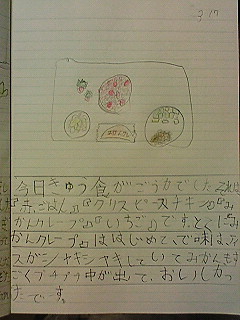 3/17
みかんクレープ
今日きゅう食がごうかでした。それは
『赤ごはん』『クリスピーチキン』『み
かんクレープ』『いちご』です。とくに『み
かんクレープ』ははじめて、で味は、
スがシャキシャキしていてみかんも
ごくプチプチ中が出て、おいしかっ
たです。